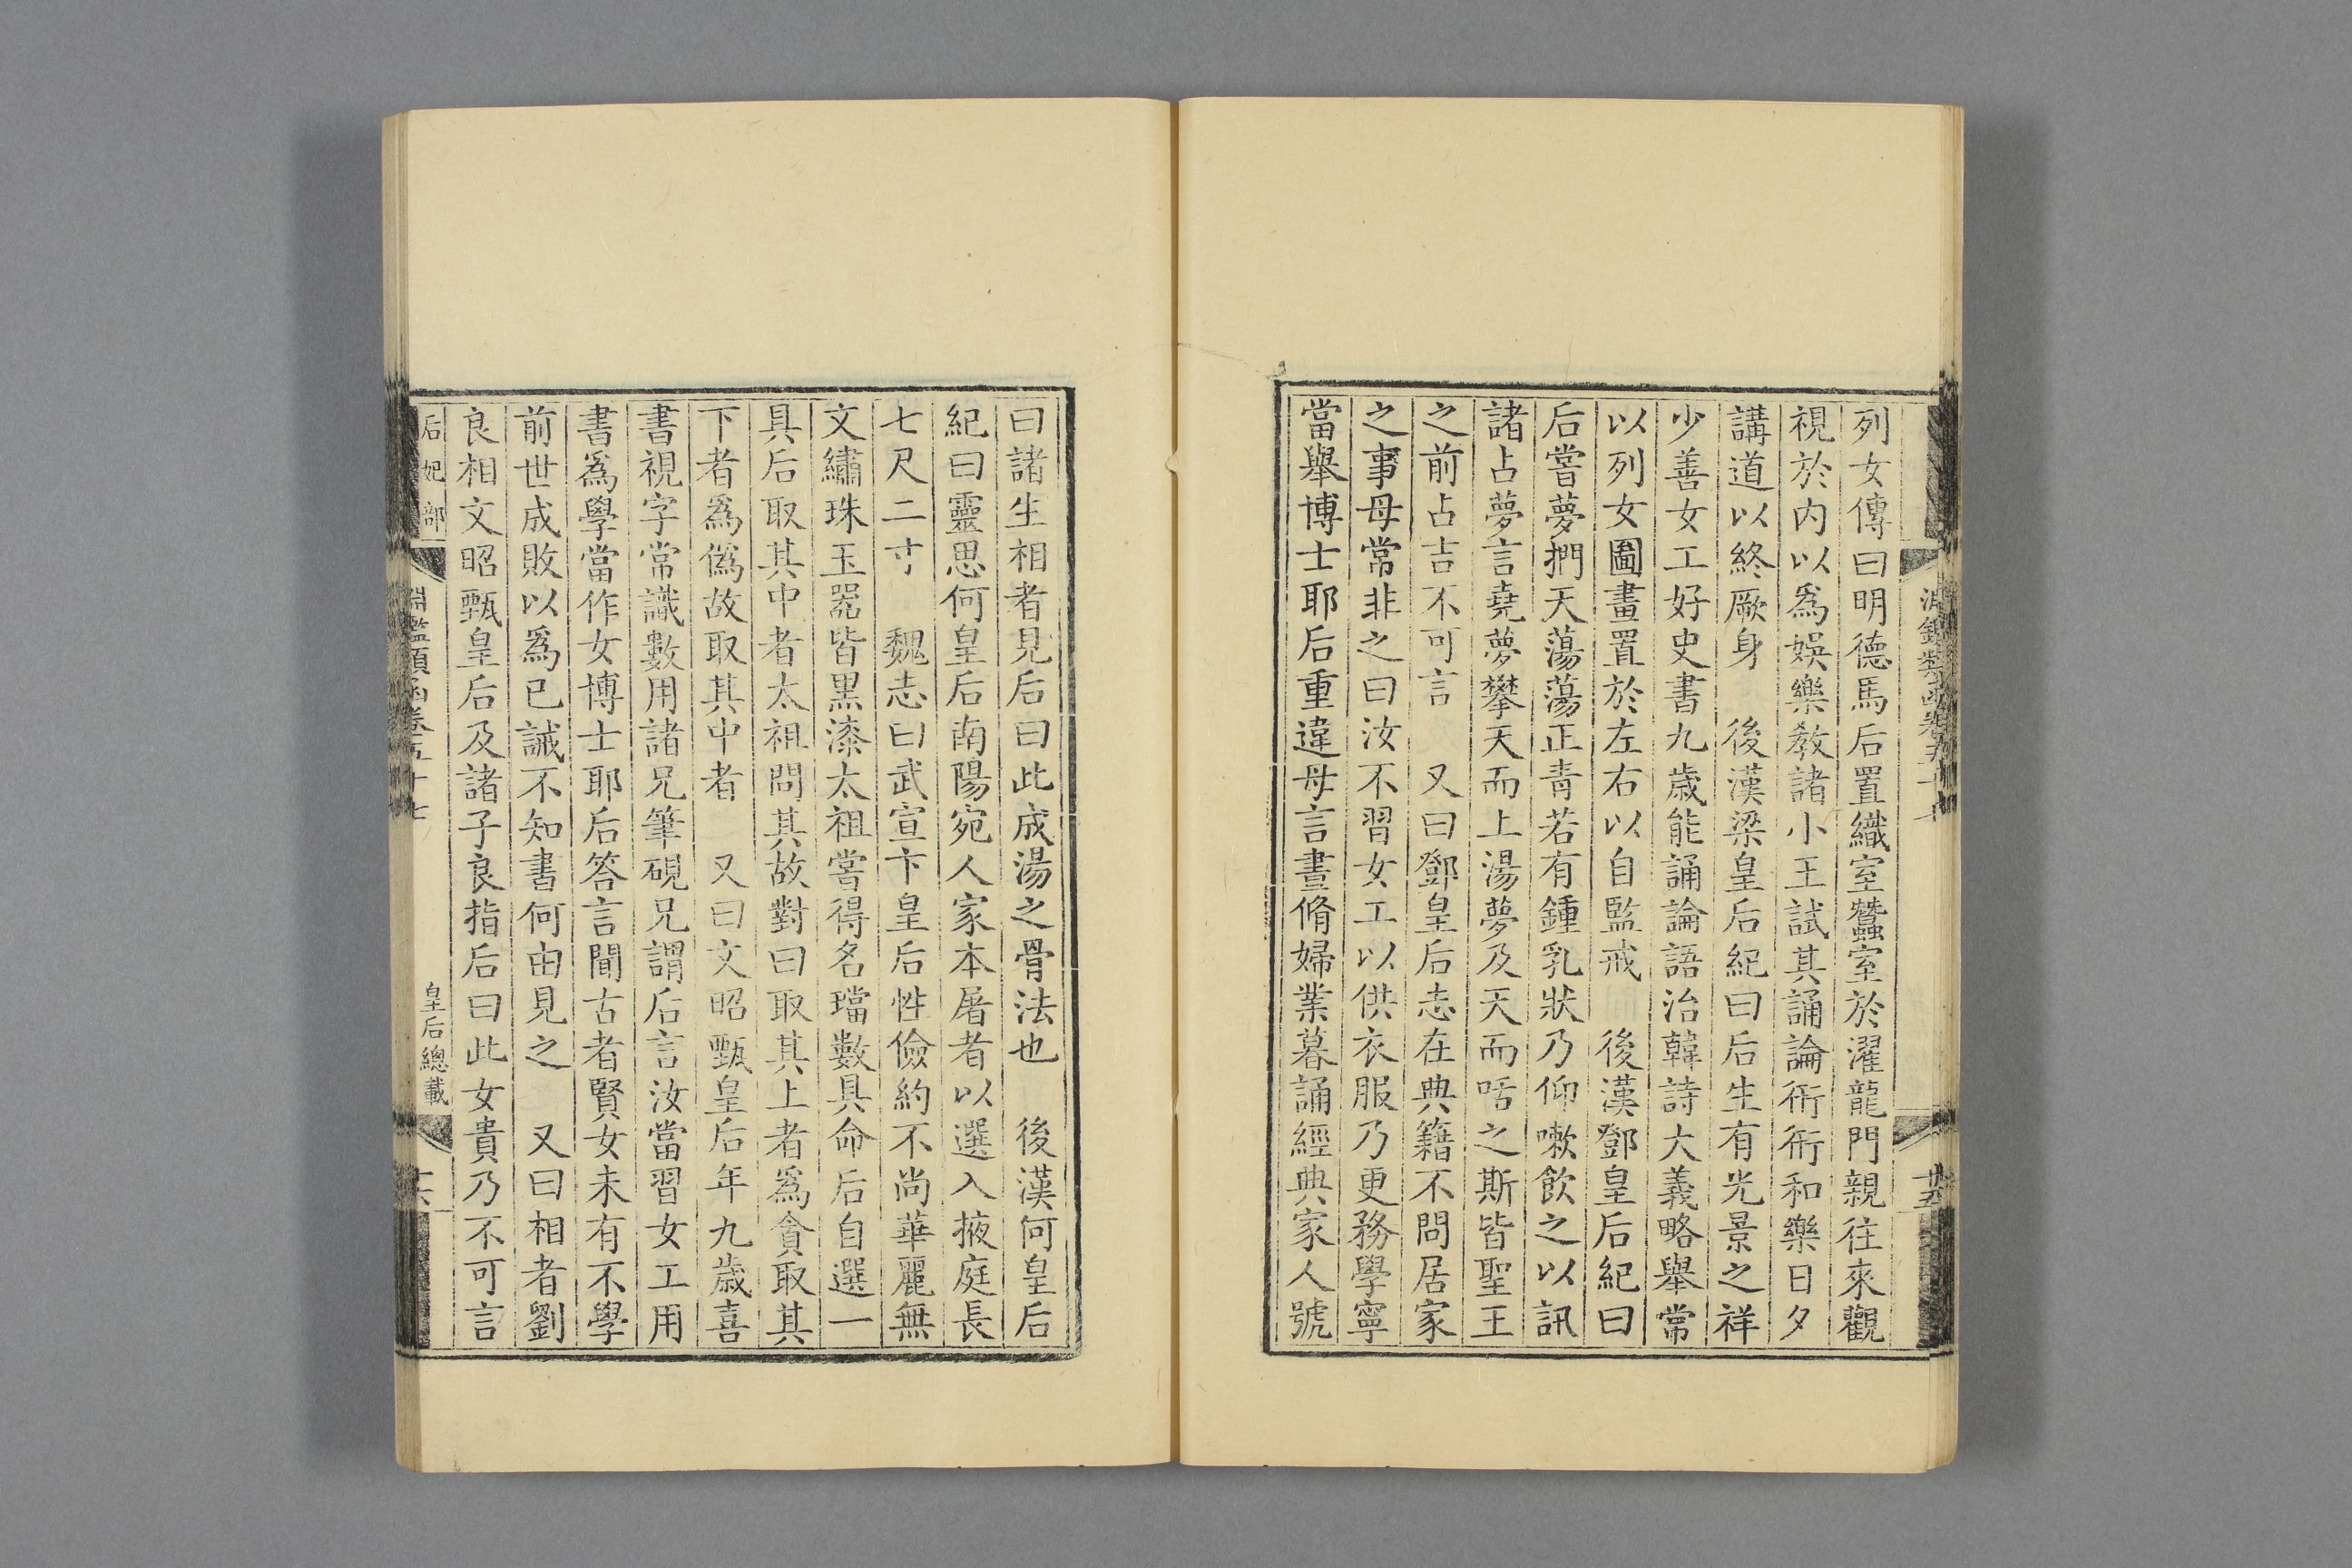 列女傳曰明德馬后置織室蠶室於濯龍門親往來觀
視於内以爲娛樂敎諸小王試其誦論衎衎和樂日夕
講道以終厥身　後漢梁皇后紀曰后生有光景之祥
少善女工好史書九歲能誦論語治韓詩大義略舉常
以列女圖畫置於左右以自監戒　後漢鄧皇后紀曰
后嘗夢捫天蕩蕩正青若有鍾乳狀乃仰嗽飲之以訊
諸占夢言堯夢攀天而上湯夢及天而咶之斯皆聖王
之前占吉不可言　又曰鄧皇后志在典籍不問居家
之事母常非之曰汝不習女工以供衣服乃更務學寧
當舉博士耶后重違母言晝脩婦業暮誦經典家人號
曰諸生相者見后曰此成湯之骨法也　後漢何皇后
紀曰靈思何皇后南陽宛人家本屠者以選入掖庭長
七尺二寸　魏志曰武宣卞皇后性儉約不尚華麗無
文繡珠玉器皆黑漆太祖嘗得名璫數具命后自選一
具后取其中者太祖問其故對曰取其上者爲貪取其
下者爲僞故取其中者　又曰文昭甄皇后年九歲喜
書視字常識數用諸兄筆硯兄謂后言汝當習女工用
書爲學當作女博士耶后答言聞古者賢女未有不學
前世成敗以爲已誡不知書何由見之　又曰相者劉
良相文昭甄皇后及諸子良指后曰此女貴乃不可言
后妃部
淵鑑類函卷五十七
皇后總載